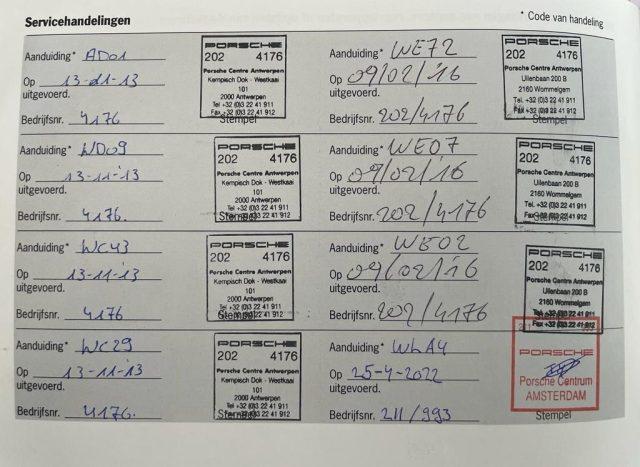 Servicehandelingen
* Code van handeling
Aanduiding* AD01
Op 13-11-13
uitgevoerd.
Bedrijfsnr. 4176
PORSCHE
202 4176
Porsche Centre Antwerpen
Kempisch Dok - Westkaai
101
2000 Antwerpen
Tel +32 (0)3 22 41 911
Fax +32 (0)3 22 41 912
Stempel
Aanduiding* WE72
Op 09/02/'16
uitgevoerd.
Bedrijfsnr. 202/4176
PORSCHE
202 4176
Porsche Centre Antwerpen
Uilenbaan 200 B
2160 Wommelgem
Tel. +32 (0)3 22 41 911
Fax +32 (0)3 22 41 912
Stempel
Aanduiding* WD09
Op 13-11-'13
uitgevoerd.
Bedrijfsnr. 4176.
PORSCHE
202 4176
Porsche Centre Antwerpen
Kempisch Dok - Westkaai
101
2000 Antwerpen
Tel +32 (0)3 22 41 911
Fax +32 (0)3 22 41 912
Stempel
Aanduiding* WE07
Op 09/02/'16
uitgevoerd.
Bedrijfsnr. 202/4176
PORSCHE
202 4176
Porsche Centre Antwerpen
Uilenbaan 200 B
2160 Wommelgem
Tel. +32 (0)3 22 41 911
Fax +32 (0)3 22 41 912
Stempel
Aanduiding* WC43
Op 13-11-'13
uitgevoerd.
Bedrijfsnr. 4176
PORSCHE
202 4176
Porsche Centre Antwerpen
Kempisch Dok - Westkaai
101
2000 Antwerpen
Tel +32 (0)3 22 41 911
Fax +32 (0)3 22 41 912
Stempel
Aanduiding* WE02
Op 09/02/'16
uitgevoerd.
Bedrijfsnr. 202/4176
PORSCHE
202 4176
Porsche Centre Antwerpen
Uilenbaan 200 B
2160 Wommelgem
Tel. +32 (0)3 22 41 911
Fax +32 (0)3 22 41 912
Aanduiding* WC29
Op 13-11-'13
uitgevoerd.
Bedrijfsnr. 4176.
PORSCHE
202 4176
Porsche Centre Antwerpen
Kempisch Dok - Westkaai
101
2000 Antwerpen
Tel +32 (0)3 22 41 911
Fax +32 (0)3 22 41 912
Stempel
Aanduiding* WLA4
Op 25-4-2022
uitgevoerd.
Bedrijfsnr. 211/993
PORSCHE
Porsche Centrum
AMSTERDAM
Stempel